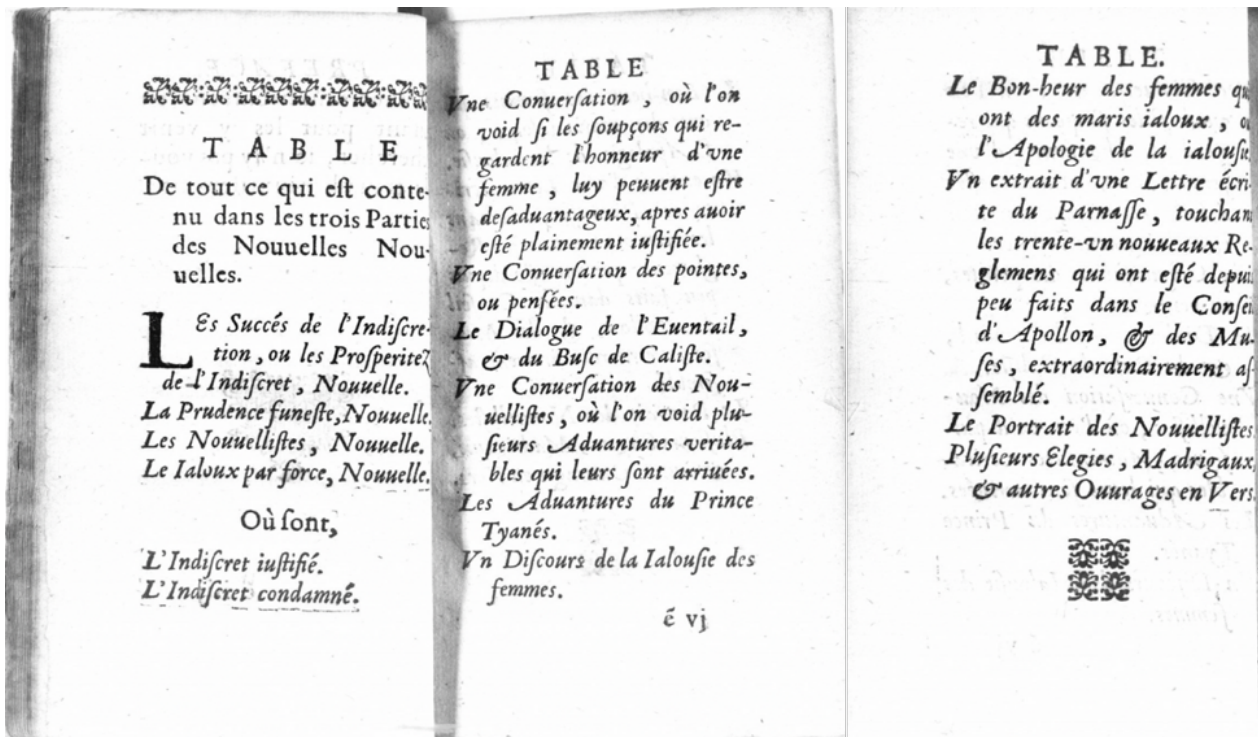 TABLE
De tout ce qui eſt conte-
nu dans les trois Parties
des Nouuelles Nou-
uelles.
LEs Succés de l'Indiſcre-
tion, ou les Proſperitez
de l'Indiſcret, Nouuelle.
La Prudence funeſte, Nouuelle.
Les Nouuelliſtes, Nouuelle.
Le Ialoux par force, Nouuelle.
Où ſont,
L'Indiſcret iuſtifié.
L'Indiſcret condamné.
TABLE
Vne Conuerſation, où l'on
void ſi les ſoupçons qui re-
gardent l'honneur d'vne
femme, luy peuuent eſtre
deſaduantageux, apres auoir
eſté plainement iuſtifiée.
Vne Conuerſation des pointes,
ou penſées.
Le Dialogue de l'Euentail,
& du Buſc de Caliſte.
Vne Conuerſation des Nou-
uelliſtes, où l'on void plu-
ſieurs Aduantures verita-
bles qui leurs ſont arriuées.
Les Aduantures du Prince
Tyanés.
Vn Diſcours de la Ialouſie des
femmes.
é vj
TABLE.
Le Bon-heur des femmes qui
ont des maris ialoux, ou
l'Apologie de la ialouſie.
Vn extrait d'vne Lettre écri-
te du Parnaſſe, touchant
les trente-vn nouueaux Re-
glemens qui ont eſté depuis
peu faits dans le Conſeil
d'Apollon, & des Mu-
ſes, extraordinairement aſ-
ſemblé.
Le Portrait des Nouuelliſtes.
Pluſieurs Elegies, Madrigaux,
& autres Ouurages en Vers.